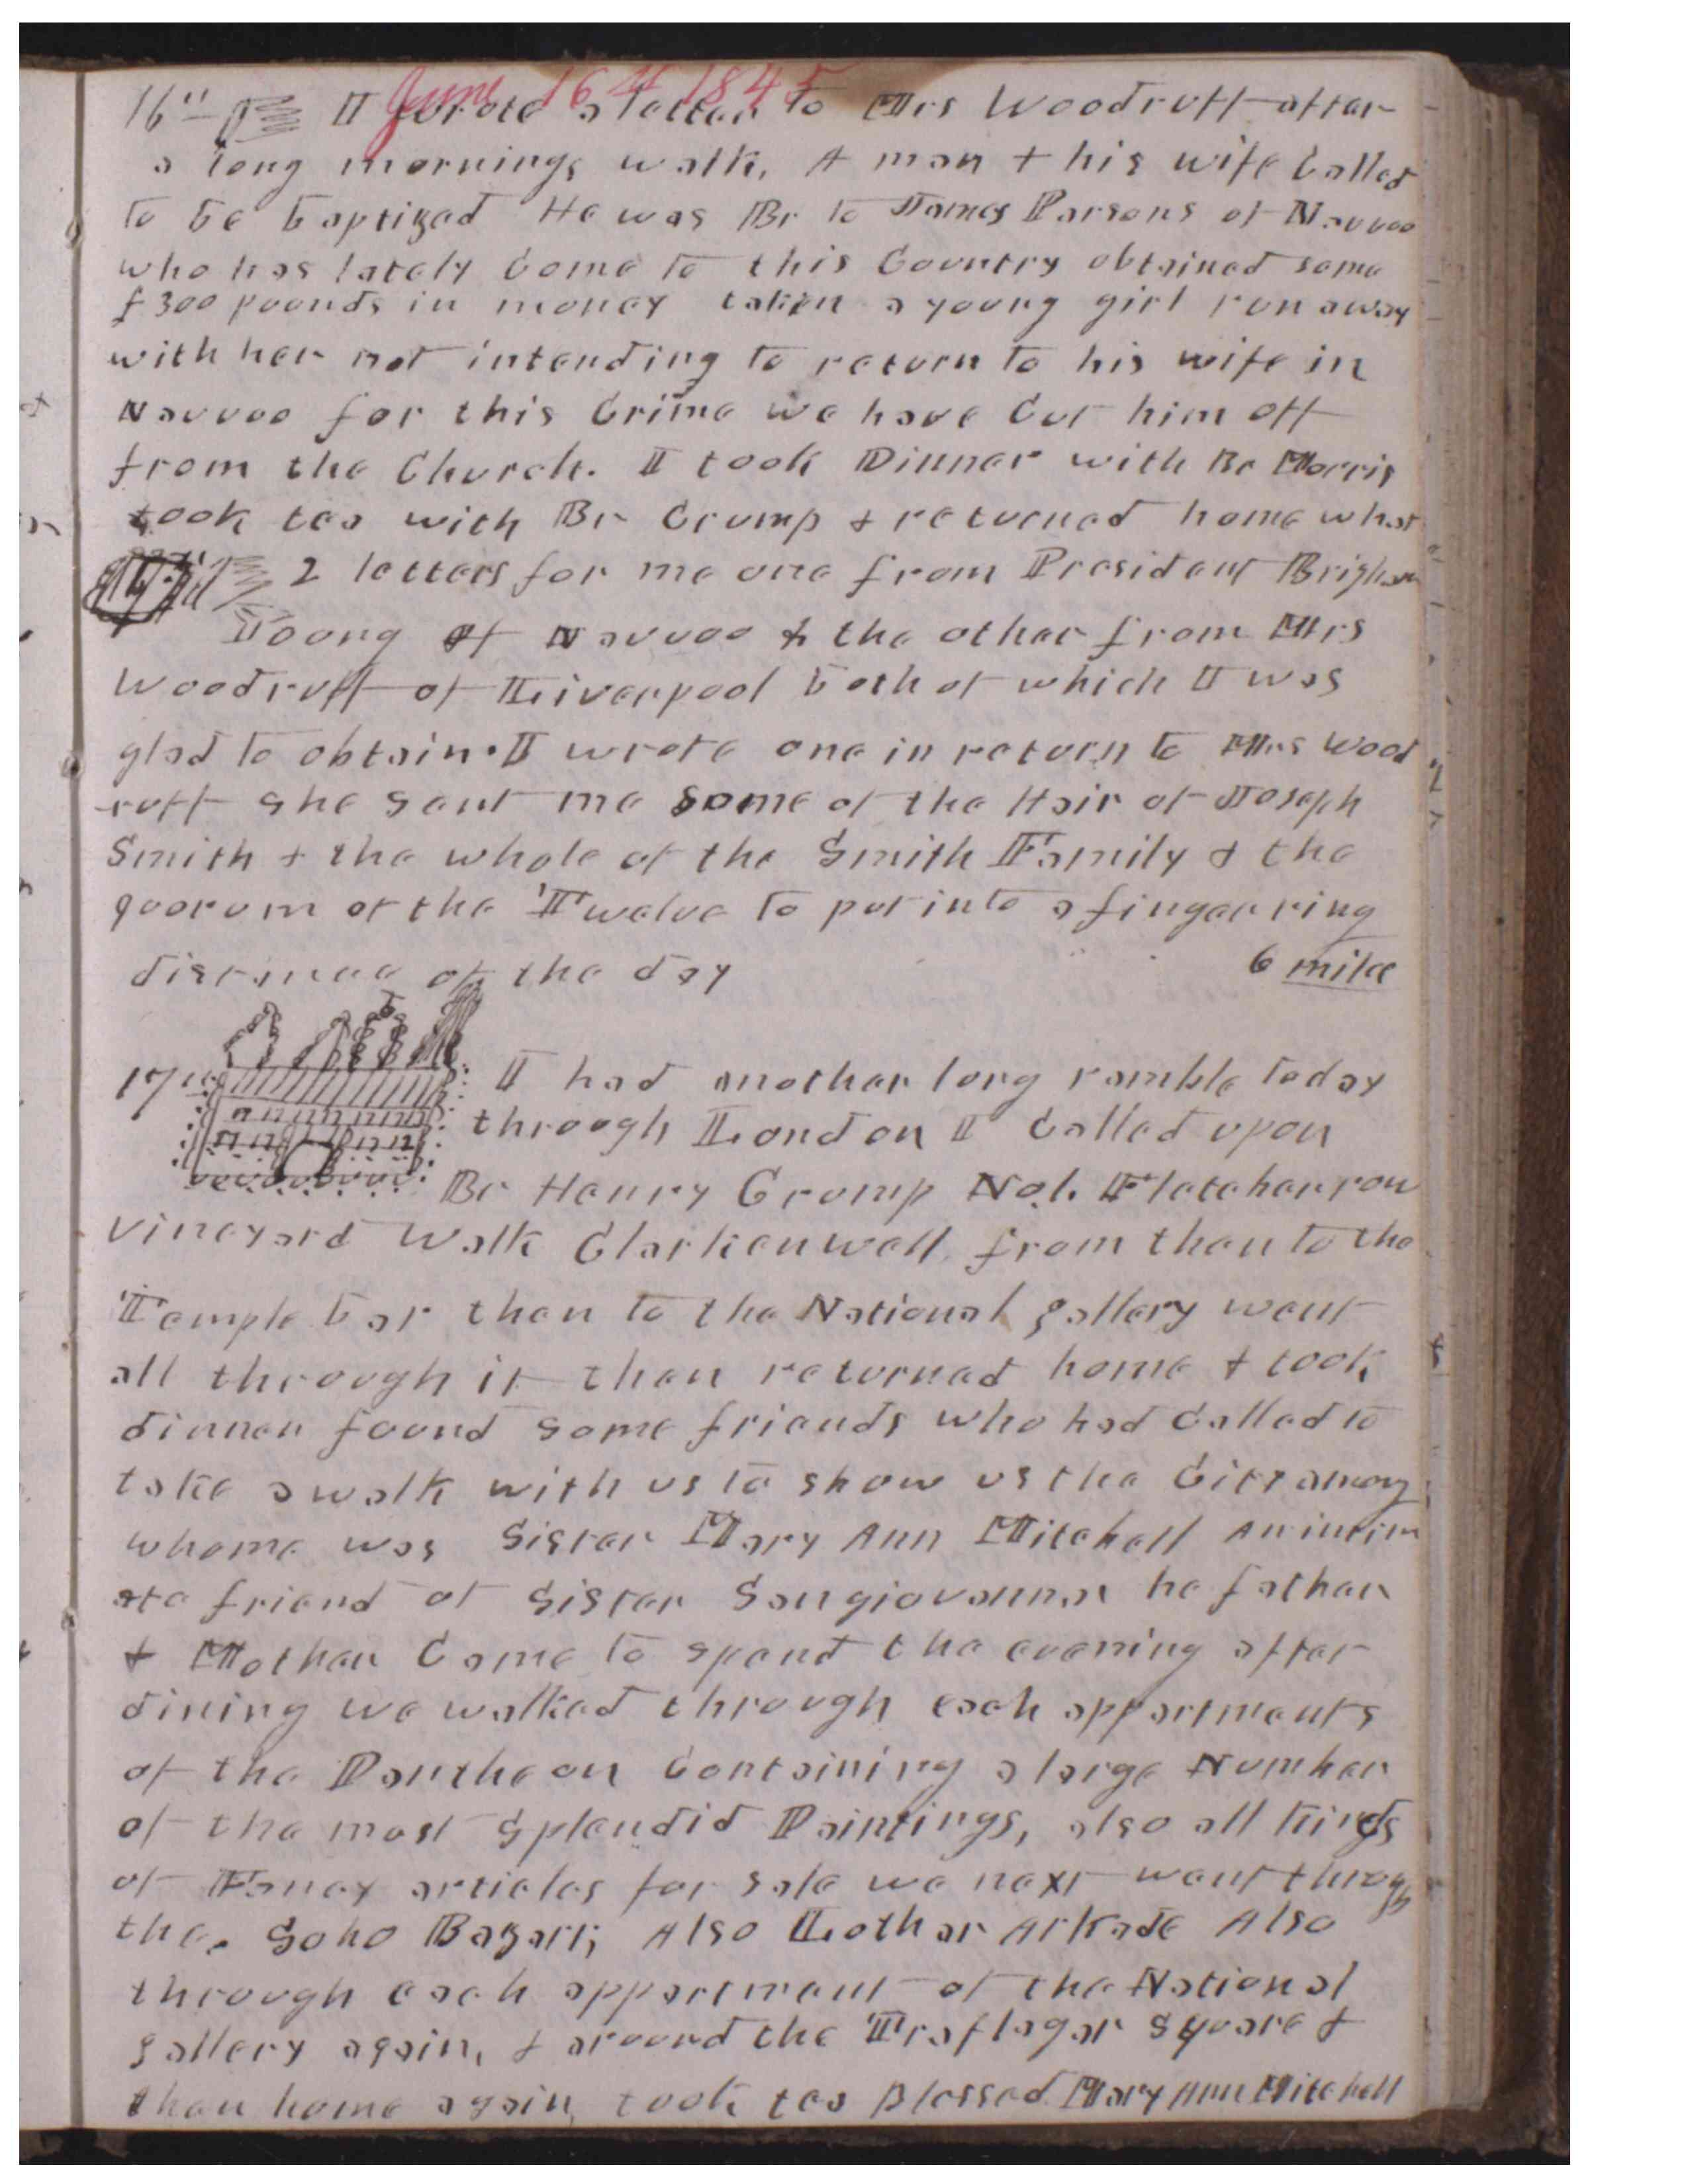 June 16th 1845
16th I wrote a letter to Mrs Woodruff after
a long mornings walk, A man & his wife Called
to be baptized He was Br to James Parsons of Nauvoo
who has lately Come to this Country obtained some
£300 pounds in money taken a young girl run away
with her not intending to return to his wife in
Nauvoo for this Crime we have Cut him off
from the Church. I took Dinner with Br Morris
took tea with Br Crump & returned home whar
2 letters for me one from President Brigham
Young of Nauvoo & the other from Mrs
Woodruff of Liverpool both of which I was
glad to obtain. I wrote one in return to Mrs Wood
-ruff she sent me some of the Hair of Joseph
Smith & the whole of the Smith Family & the
quorum of the Twelve to put into a finger ring
distance of the day 6 mile
17th I had another long ramble today
through London I Called upon
Br Henry Crump No 1. Fletcher row
Vineyard Walk Clarkenwell from then to the
Temple bar then to the National gallery went
all through it then returned home & took
dinner found some friends who had Called to
take a walk with us to show us the City among
whome was Sister Mary Ann Mitchell an intim
ate friend of Sister Sangiovanna he father
& Mother Came to spend the evening after
dining we walked through each appartments
of the Pantheon Containing a large Number
of the most Splendid Paintings, also all kinds
of Fancy articles for sale we next went through
the. Soho Bazarr; Also Lother Arkade Also
through each appartment of the National
gallery again, & around the Traflagar Square &
then home again took tea Blessed Mary Ann Mitchell